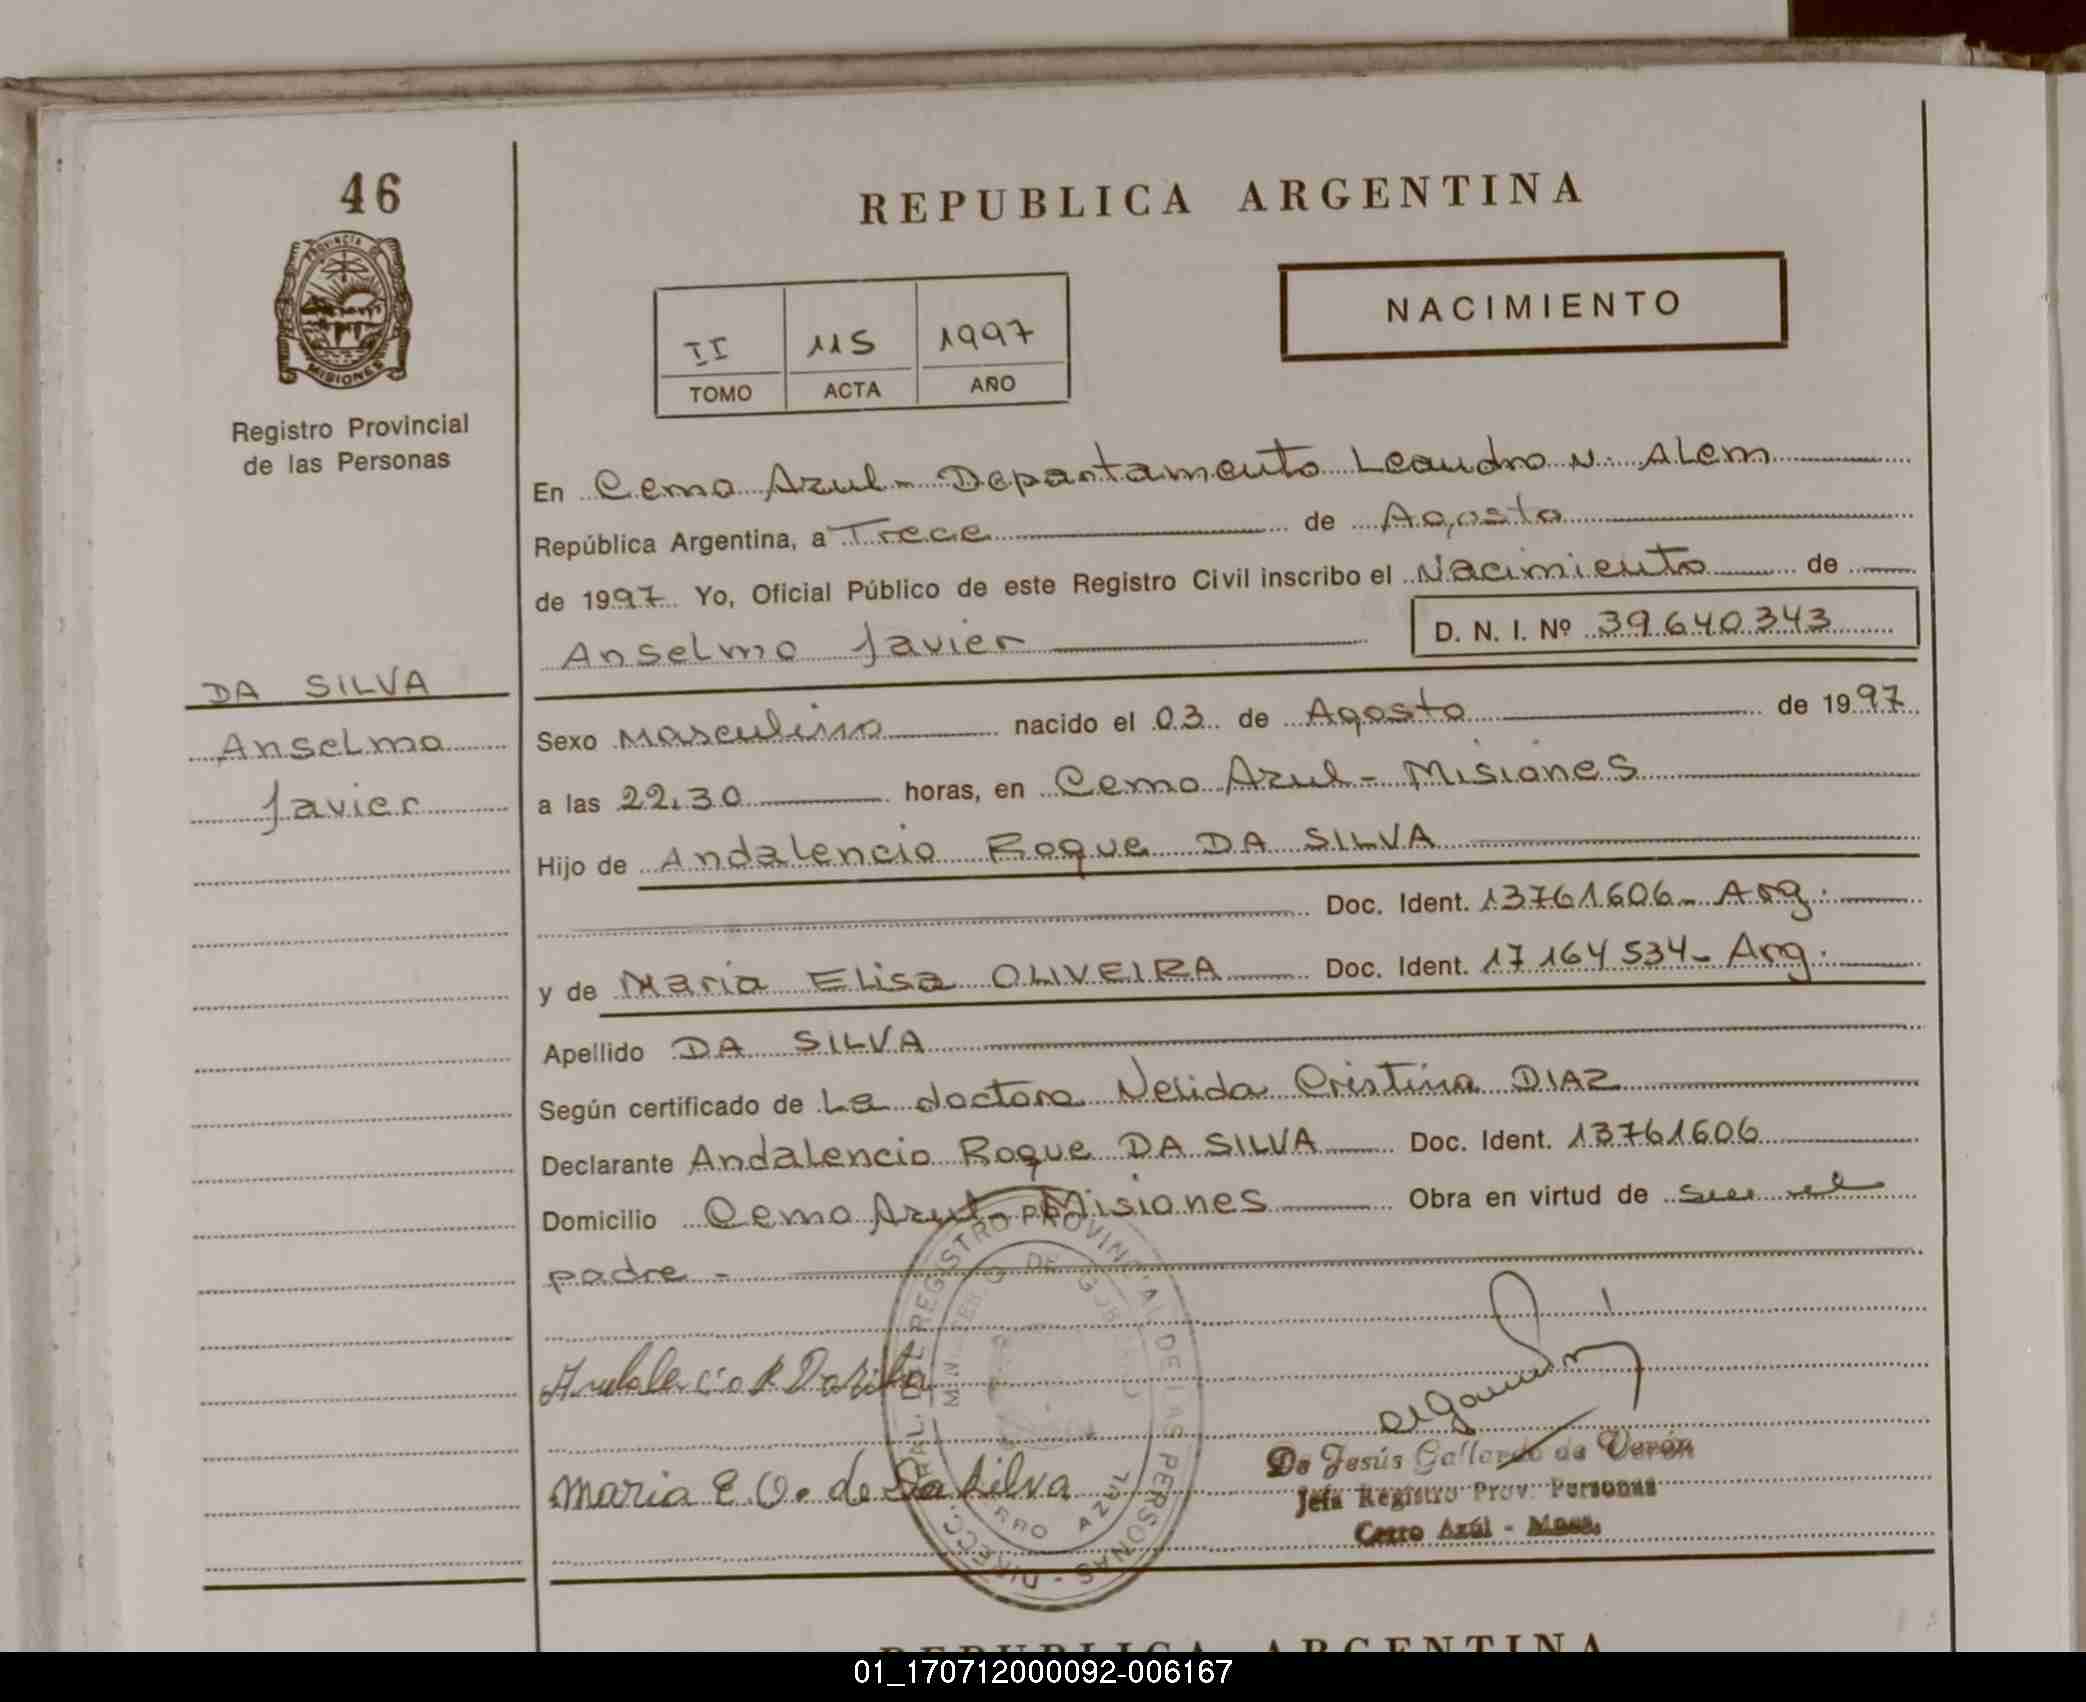 46
REPUBLICA ARGENTINA
PROVINCIA DE
MISIONES
Registro Provincial
de las Personas
NACIMIENTO
II 115 1997
TOMO ACTA AÑO
En Cerro Azul - Departamento Leandro N. Alem
República Argentina, a Trece de Agosto
de 1997 Yo, Oficial Público de este Registro Civil inscribo el Nacimiento de
Anselmo Javier D. N. I. Nº 39640343
DA SILVA
Anselmo
Javier
Sexo Masculino nacido el 03 de Agosto de 1997
a las 22.30 horas, en Cerro Azul - Misiones
Hijo de Andalencio Roque DA SILVA
Doc. Ident. 13761606 - Arg.
y de Maria Elisa OLIVEIRA Doc. Ident. 17164534 - Arg.
Apellido DA SILVA
Según certificado de La doctora Nelida Cristina DIAZ
Declarante Andalencio Roque DA SILVA Doc. Ident. 13761606
Domicilio Cerro Azul - Misiones Obra en virtud de ser el
padre -
Andalencio R Dasilva
Maria E. O. de Da Silva
DIRECC. GRAL. DEL REGISTRO PROVINCIAL DE LAS PERSONAS -
MINISTERIO DE GOBIERNO
CERRO AZUL
De Jesús Gallardo de Verón
Jefa Registro Prov. Personas
Cerro Azúl - Mnes.
REPUBLICA ARGENTINA
01_170712000092-006167